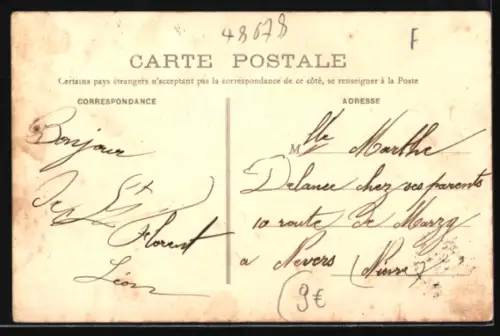 48678
F
CARTE POSTALE
Certains pays étrangers n'acceptant pas la correspondance de ce côté, se renseigner à la Poste
CORRESPONDANCE
Bonjour
De St
Florent
Léon
ADRESSE
Mlle Marthe
Delance chez ses parents
10 route de Marzy
a Nevers (Nievre)
9€